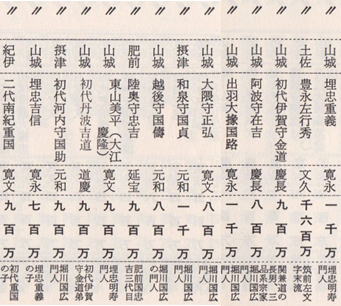 〃 山城 埋忠重義 寛永 一千万 埋忠明寿門人
〃 土佐 豊永左行秀 文久 千六百万 筑前左文字末流
〃 山城 初代伊賀守金道 慶長 一千万 関兼道長男、三品系家
〃 山城 阿波守在吉 慶長 八百万 堀川国広門人
〃 山城 出羽大掾国路 寛永 一千万 堀川国広門人
〃 山城 大隅守正弘 寛文 八百万 堀川国広門人
〃 摂津 和泉守国貞 元和 一千万 堀川国広門人
〃 山城 越後守国儔 元和 八百万 堀川国広の門人
〃 肥前 陸奥守忠吉 延宝 九百万 肥前忠吉三代目
〃 山城 東山美平（大江慶隆） 寛文 九百万 初代伊賀守金道弟
〃 山城 初代丹波吉道 慶長 九百万 埋忠明寿門人
〃 摂津 初代河内守国助 元和 九百万 堀川国広門人
〃 山城 埋忠吉信 寛永 七百万 埋忠重義の子
〃 紀伊 二代南紀重国 寛文 九百万 初代重国の子